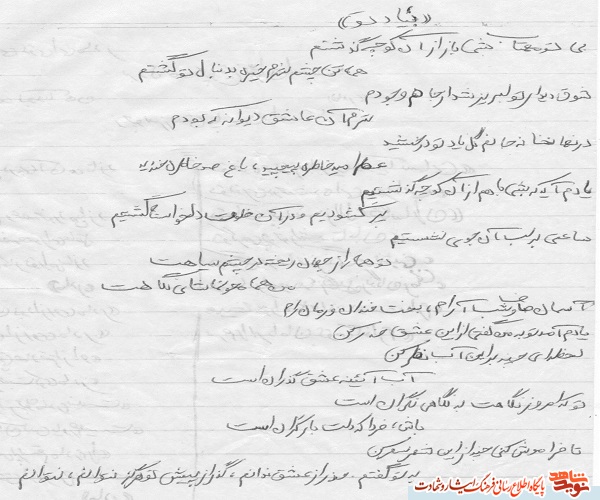 «بیاد حق»
بی تو مهتاب شبی باز از آن کوچه گذشتم
همه تن چشم شدم خیره بدنبال تو گشتم
شوق دیدار تو لبریز شد از جام وجودم
شدم آن عاشق دیوانه که بودم
در نهانخانه جانم گل یاد تو درخشید
عطر صد خاطره پیچید، باغ صد خاطره خندید
یادم آید که شبی با هم از آن کوچه گذشتیم
پر گشودیم و در آن خلوت دلخواسته گشتیم
ساعتی بر لب آن جوی نشستیم
تو همه راز جهان ریخته در چشم سیاهت
من همه محو تماشای نگاهت
آسمان صاف و شب آرام، بخت خندان و زمان رام
یادم آمد تو به من گفتی از این عشق حذر کن
لحظه‌ای چند بر این آب نظر کن
آب آئینه عشق گذران است
تو که امروز نگاهت به نگاهی نگران است
باش، فردا که دلت با دگران است
تا فراموش کنی چند از این شهر سفر کن
به تو گفتم. حذر از عشق ندانم، گذر از پیش تو هرگز نتوانم، نتوانم
نوید شاهد
پایگاه اطلاع رسانی فرهنگ ایثار و شهادت